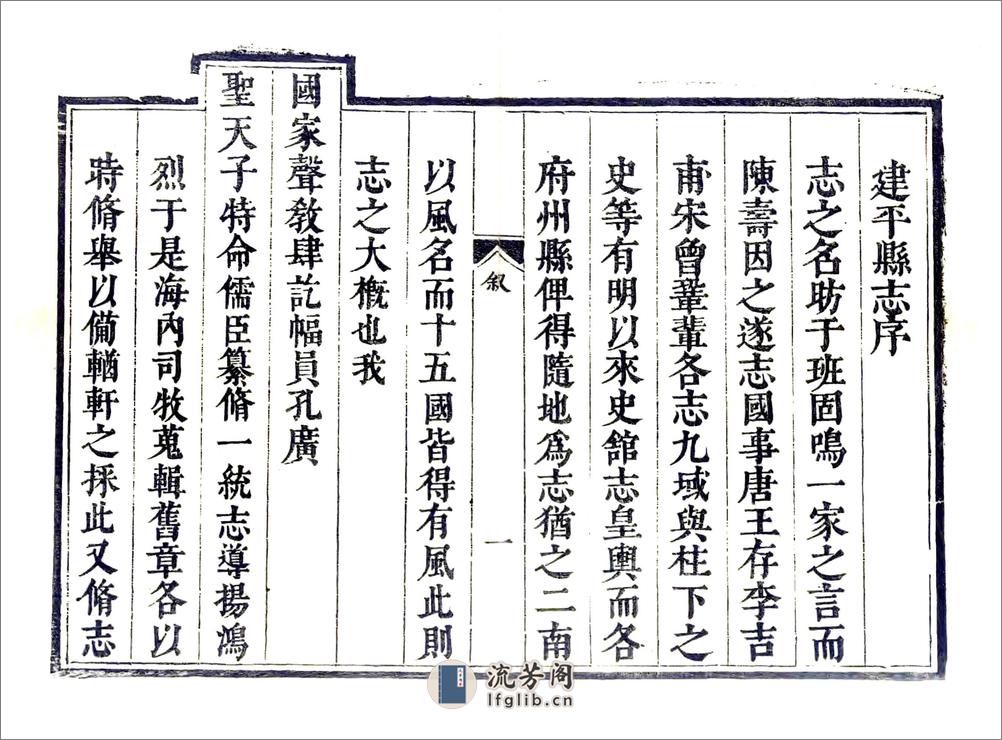 建平縣志序
志之名昉于班固鳴一家之言而
陳壽因之遂志國事唐王存李吉
甫宋曾鞏輩各志九域與柱下之
史等有明以來史舘志皇輿而各
府州縣俾得隨地為志猶之二南
叙
一
以風名而十五國皆得有風此則
志之大槪也我
國家聲敎肆訖幅員孔廣
聖天子特命儒臣纂脩一統志導揚鴻
烈于是海內司牧蒐輯舊章各以
時脩舉以備輶軒之採此又脩志
流芳阁
lfglib.cn